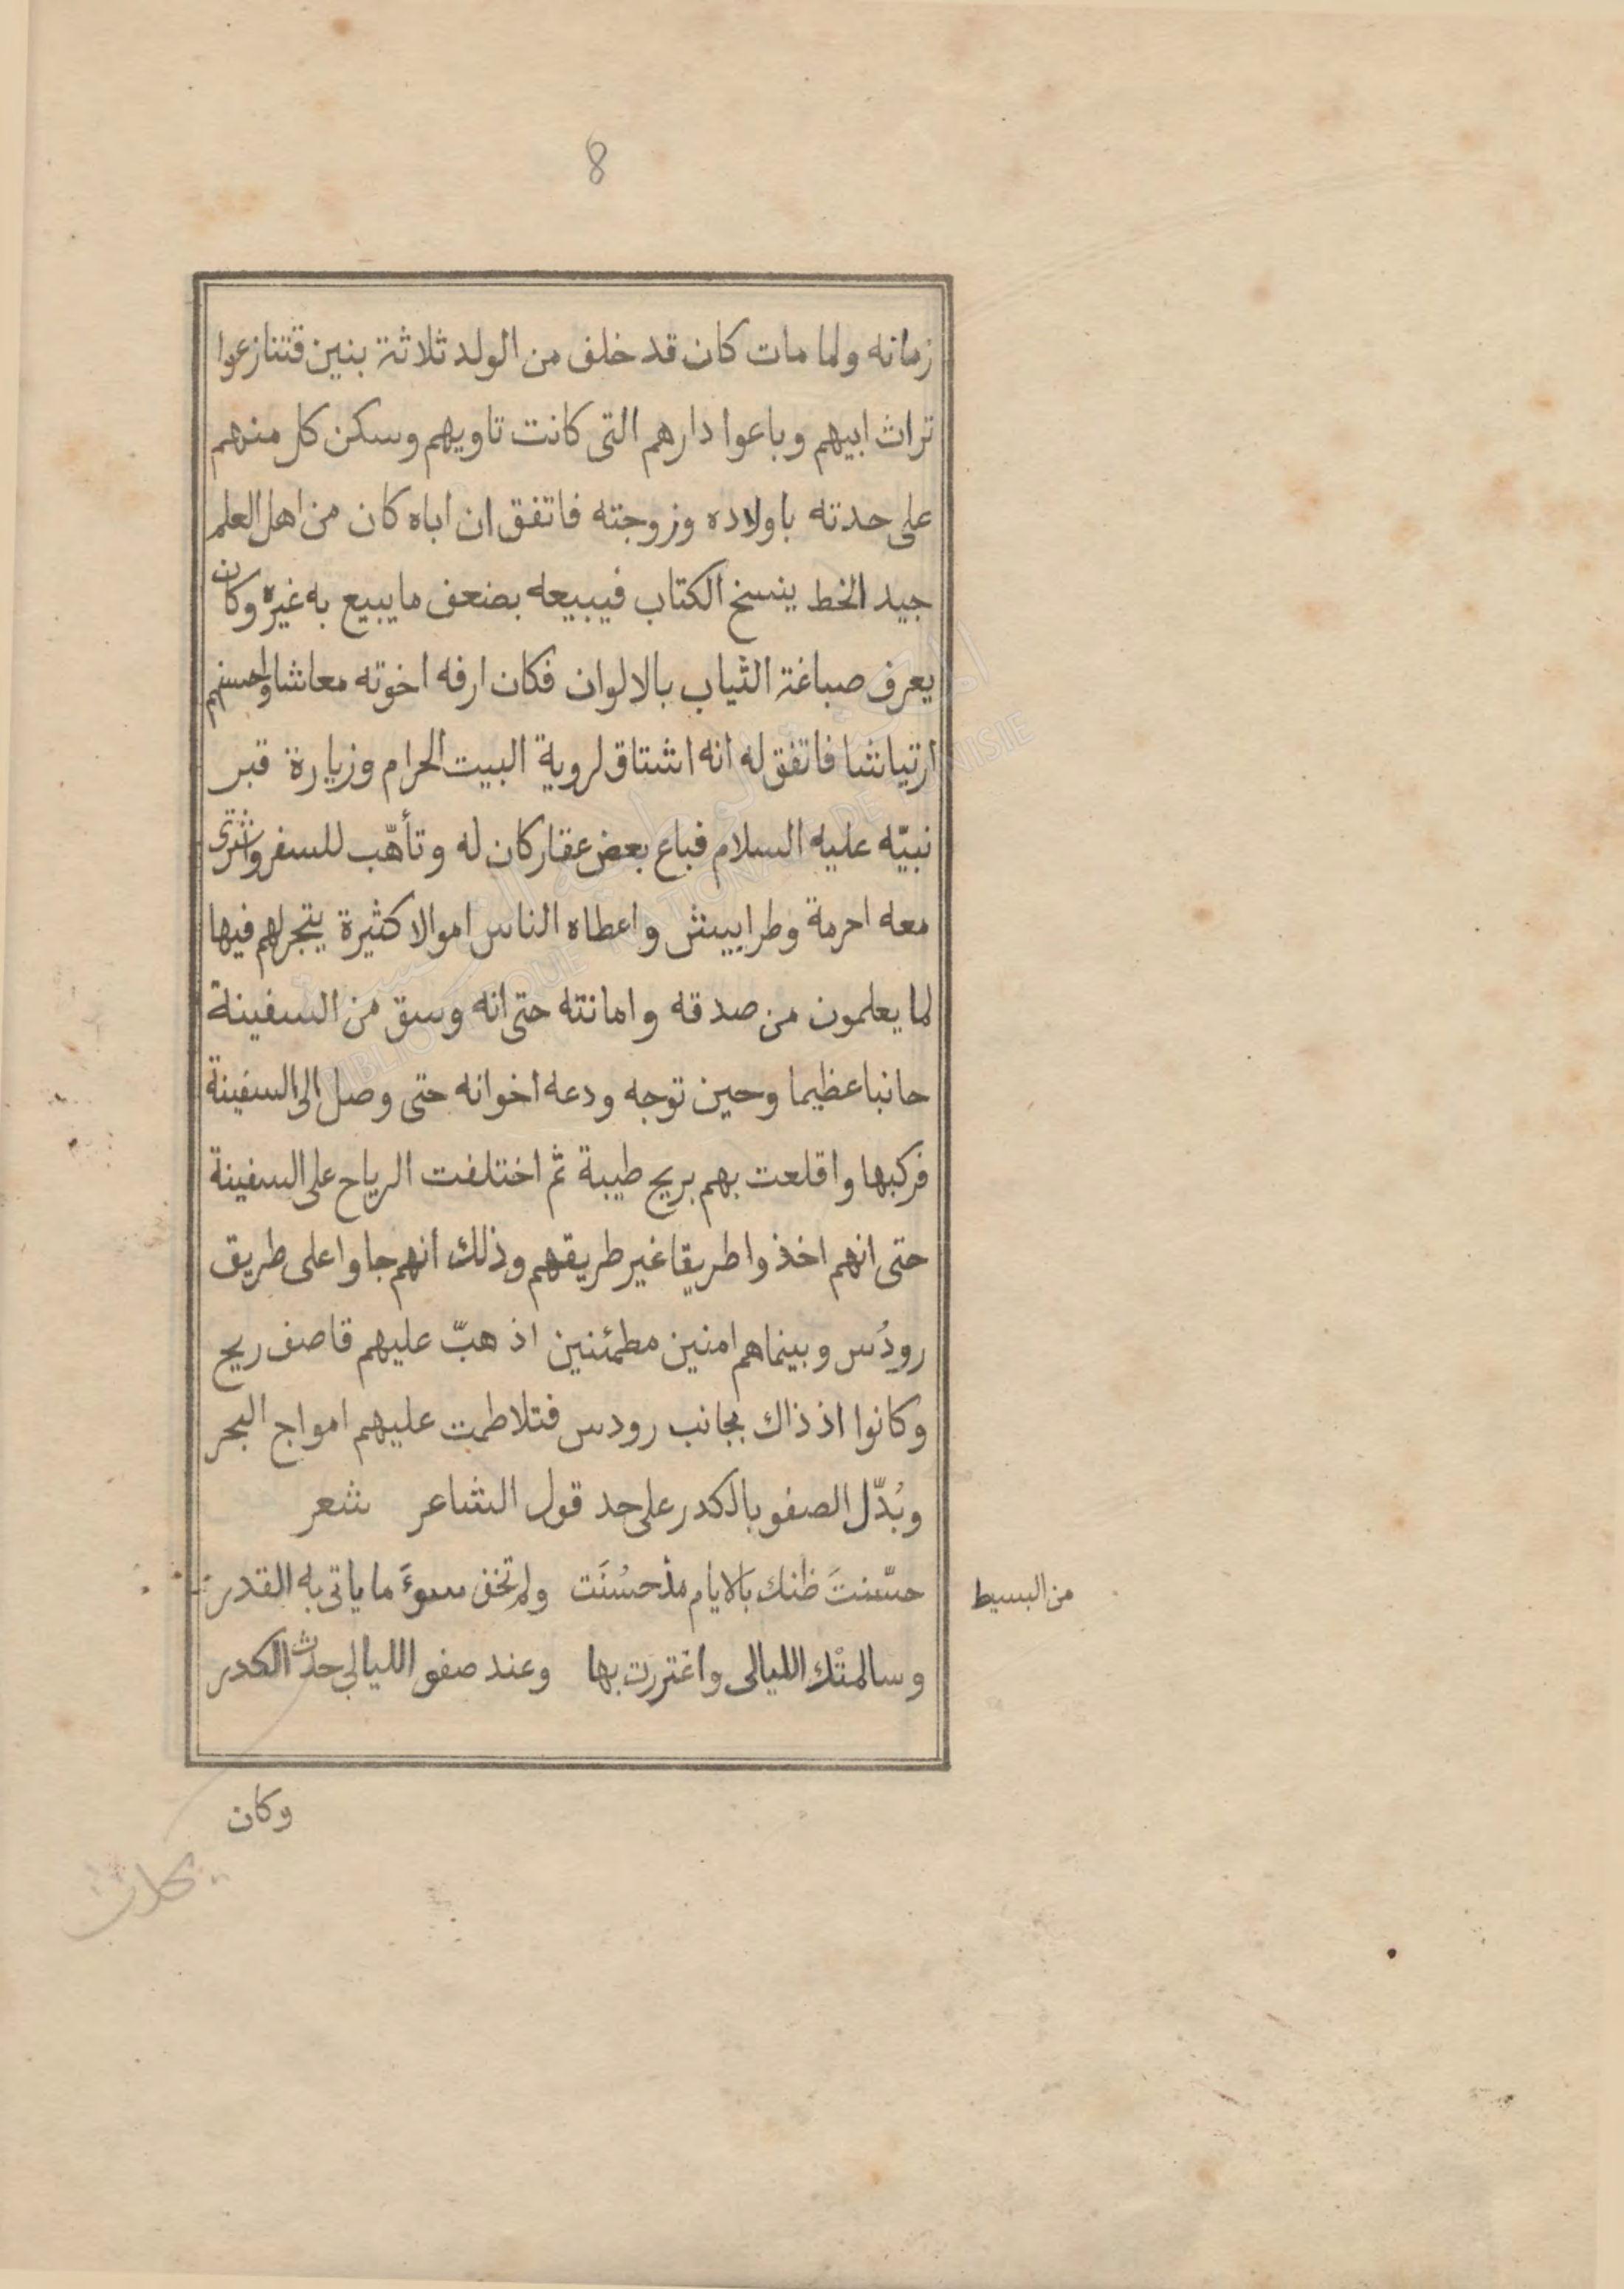 8
زمانه ولما مات كان قد خلف من الولد ثلاثة بنين فتنازعوا
تراث ابيهم وباعوا دارهم التى كانت تاويهم وسكن كل منهم
على حدته باولاده وزوجته فاتفق ان اباه كان من اهل العلم
جيد الخط ينسخ الكتاب فيبيعه بضعف ما يبيع به غيره وكان
يعرف صباغة الثياب بالالوان فكان ارفه اخوته معاشا واحسنهم
ارتياشا فاتفق له انه اشتاق لروية البيت الحرام وزيارة قبر
نبيّه عليه السلام فباع بعض عقار كان له وتأهّب للسفر واشترى
معه احرمة وطرابيش واعطاه الناس اموالا كثيرة يتجر لهم فيها
لما يعلمون من صدقه وامانته حتى انه وسق من السفينة
جانبا عظيما وحين توجه ودعه اخوانه حتى وصل الى السفينة
فركبها واقلعت بهم بريح طيبة ثم اختلفت الرياح على السفينة
حتى انهم اخذوا طريقا غير طريقهم وذلك انهم جاوا على طريق
رودُس وبينما هم امنين مطمئنين اذ هبّ عليهم قاصف ريح
وكانوا اذ ذاك بجانب رودس فتلاطمت عليهم امواج البحر
وبُدّل الصفو بالكدر على حد قول الشاعر شعر
حسّنتَ ظنك بالايام مذ حسُنَت ولم تخف سوءَ ما ياتى به القدر
من البسيط
وسالمتْك الليالى واغتررت بها وعند صفو الليالي حدث الكدر
وكان